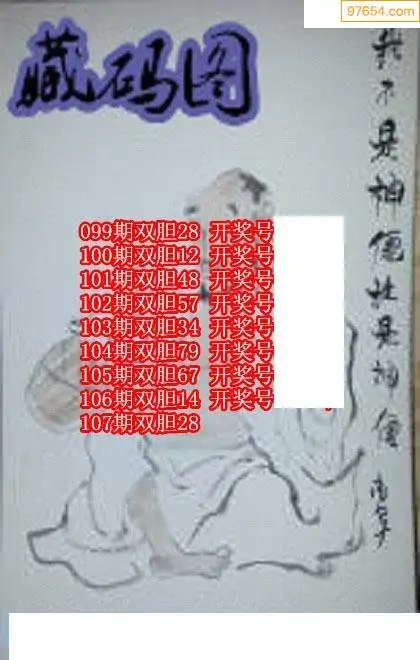 97654.com
藏码图
我不是神是神
099期双胆28 开奖号
100期双胆12 开奖号
101期双胆48 开奖号
102期双胆57 开奖号
103期双胆34 开奖号
104期双胆79 开奖号
105期双胆67 开奖号
106期双胆14 开奖号
107期双胆28